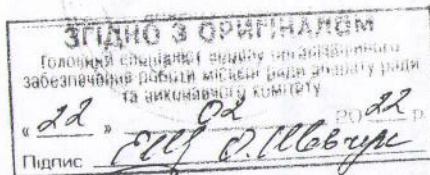 ЗГІДНО З ОРИГІНАЛОМ
Головний спеціаліст відділу організаційного
забезпечення роботи міської ради апарату ради
та виконавчого комітету
« 22 » 02 2022 р.
Підпис О. Шевчук